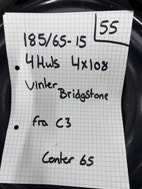 55
185/65-15
• 4 Huls 4x108
Vinter
Bridgstone
• fra C3
Center 65